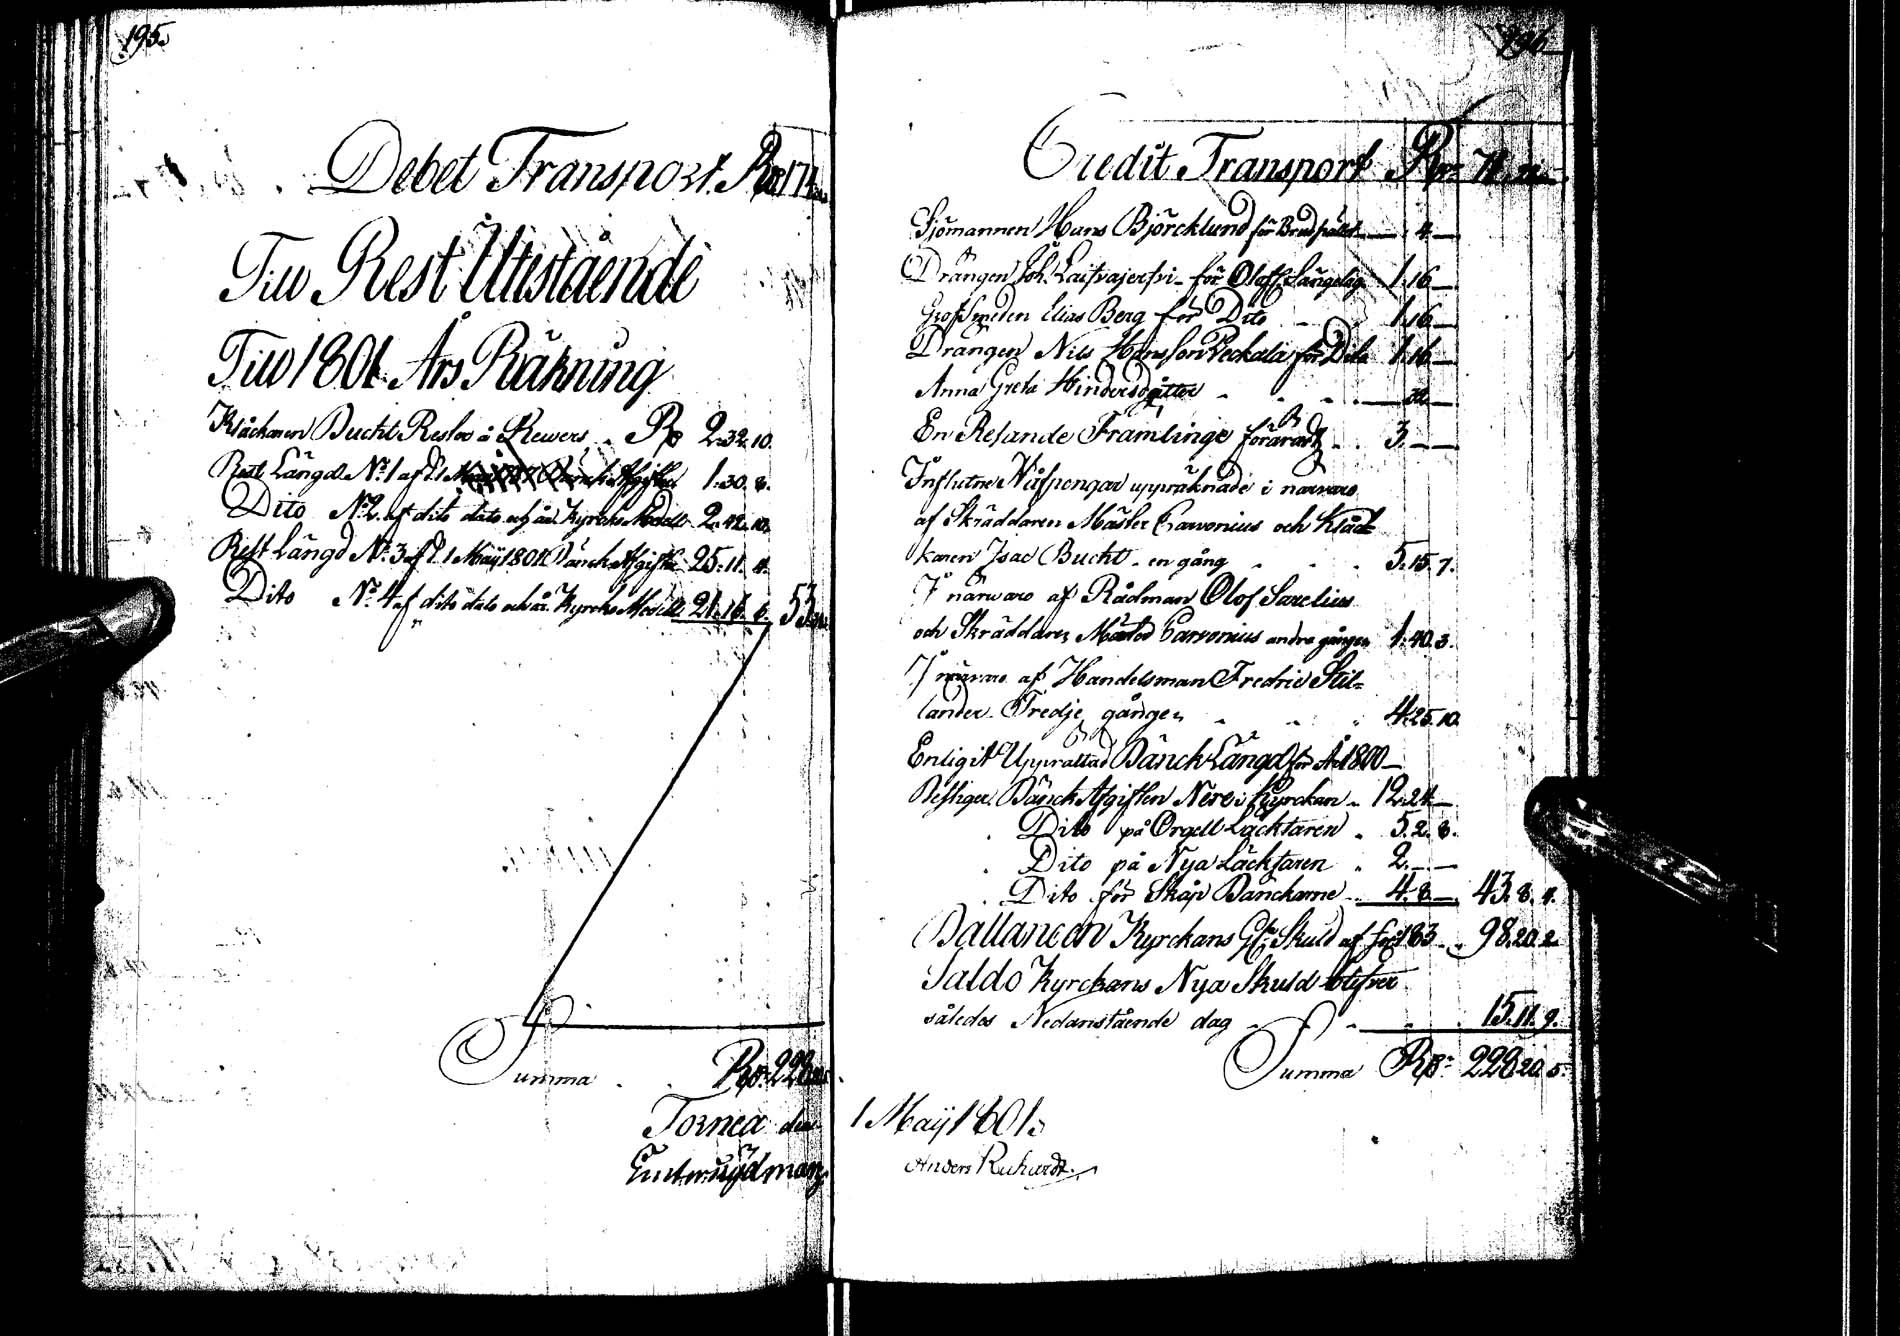 195.
Debet Transport Rdr 174
Till Rest Utestående
Till 1801 Års Räkning
Klåckaren Bucht Resto å Rewers . Rdr 2.32.10.
Rest Längd No. 1 af d. 1 Bänck Afgifter 1.30.8.
Dito No. 2 af dito dato och år Kyrcko Medell 2.42.10.
Rest Längd No. 3 af d. 1 Maÿ 1801 Bänck Afgifter 25.11.4.
Dito No. 4 af dito dato och år Kyrcko Medell 21.16.6. 53.
Summa . . Rdr 228
Torneå den
Gustaf
196.
Credit Transport Rdr 71.
Sjömannen Hans Björcklund för 4.—
Drängen Joh. för Olofl. Sängelag 1.16—
Grofsmeden Elias Berg för Dito 1.16—
Drängen Nils Hansson för Dito 1.16—
Anna Greta Hindersdotter . . . 32—
En Resande Främlinge förärat . . 3.—
Influtne Håfpengar uppräknade i närwaro
af Skräddaren Mäster Carvonius och Klåc=
karen Isac Bucht . en gång . . . 5.15.7.
I närwaro af Rådman Olof Sarelius
och Skräddaren Mäster Carvonius andra gången 1.40.3.
I närwaro af Handelsman Fredric Stil=
lander. Tredje gången . . . 4.25.10.
Enligit Upprättad Bänck Längd för År 1800—
Bänck Afgiften Nere i Kyrckan . 12.24—
Dito på Orgell Läcktaren . 5.2.8.
Dito på Nya Läcktaren . 2.—
Dito för Skåp Bänckarne . 4.8—. 43.8.4.
Ballancen Kyrckans Skuld af 183 . 98.20.2.
Saldo Kyrckans Nya Skuld
således Nedanstående dag . . . 15.11.9.
Summa Rdr 228.20.5.
1 Maÿ 1801.
Anders